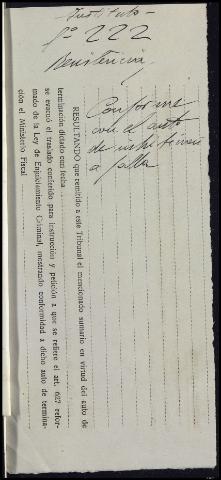 Instituto -
nº 222
Penitencia
Conforme
con el auto
de
a falta
RESULTANDO que remitido a este Tribunal el mencionado sumario en virtud del auto de
terminación dictado con fecha
se evacuó el traslado conferido para instrucción y petición a que se refiere el art. 627 refor-
mado de la Ley de Enjuiciamiento Criminal, mostrando conformidad a dicho auto de termina-
ción el Ministerio Fiscal